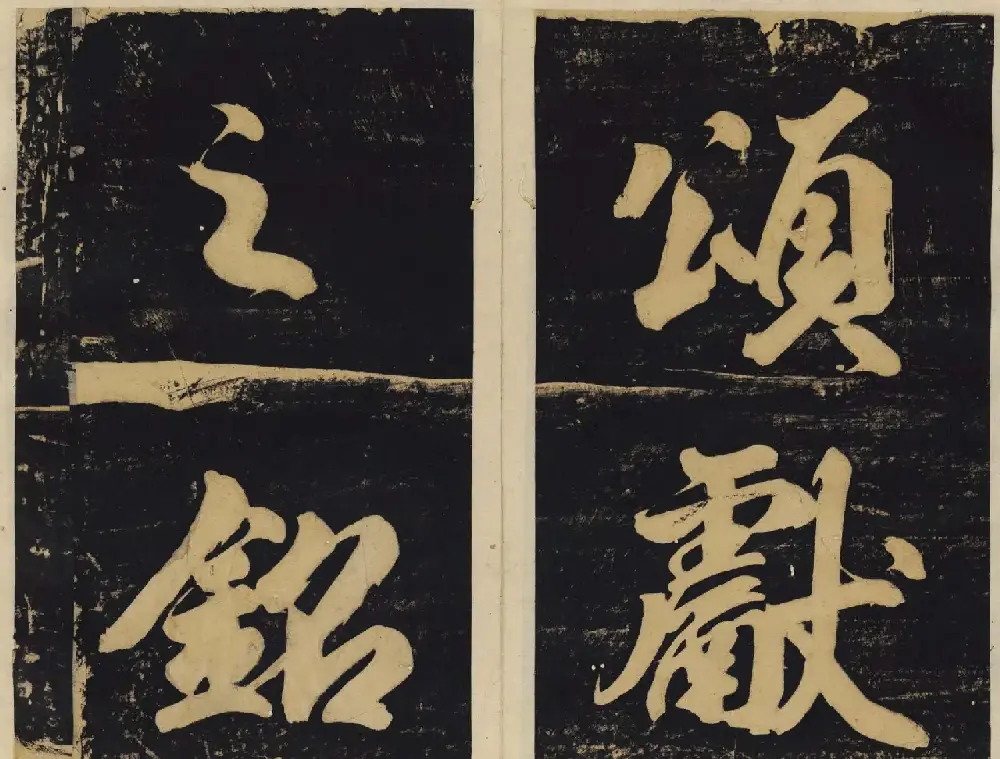 頌獻
之銘